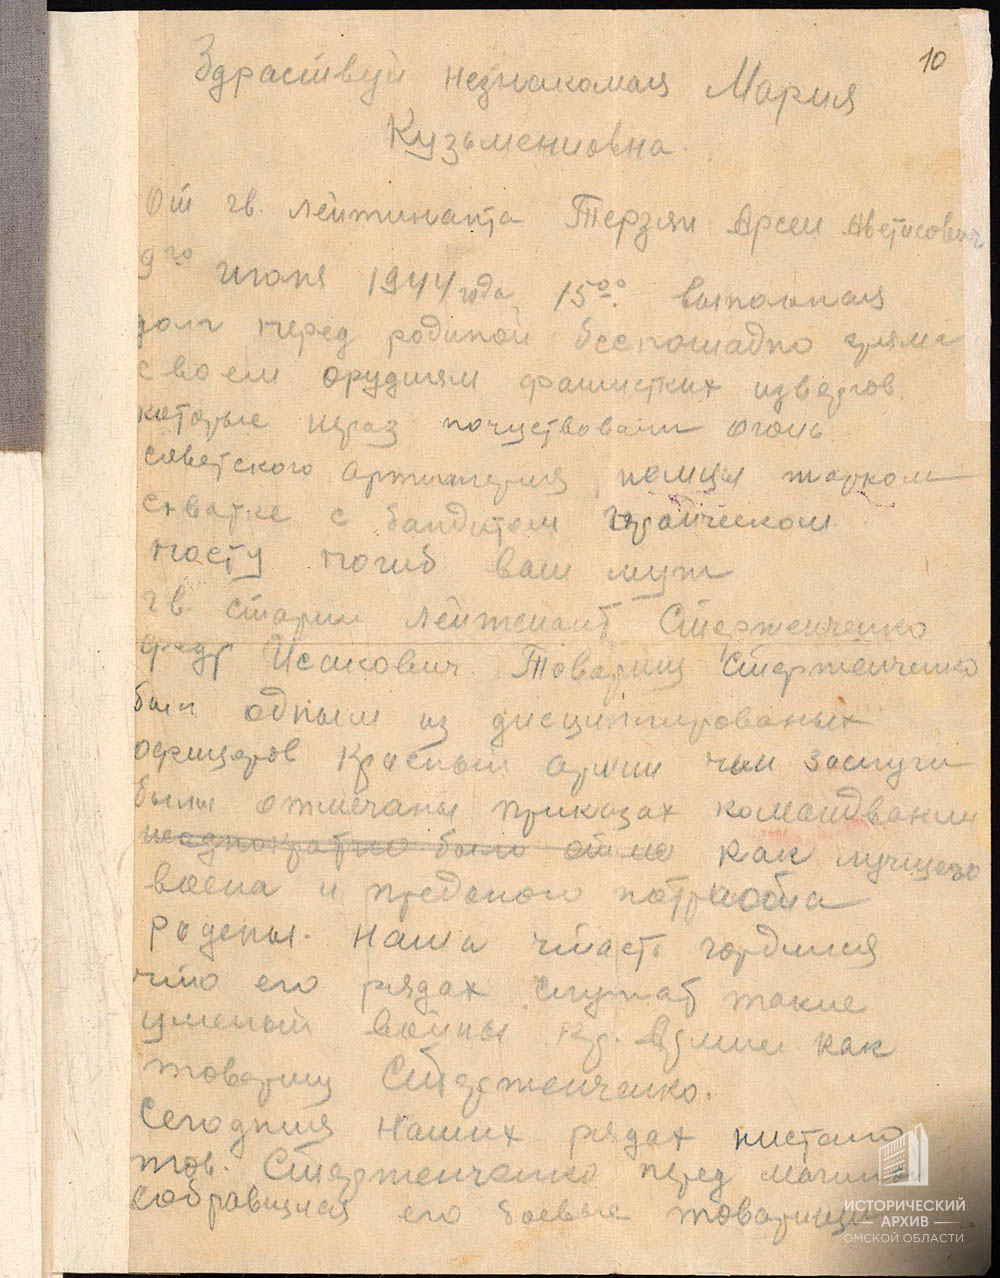 10
Здраствуй незнакомая Мария
Кузьминиовна.
От гв. лейтинанта Терзян Арсен Аветисович
9го июля 1944 года 15°° выполняя
долг перед родиной беспощадно громя
своем орудиям фашистких извергов
которые нераз почуствовали огонь
советского артилерия, жарком
схватке с бандитом
посту погиб ваш муж
гв. старши лейтенант Стерженченко
Исакович. Товарищ Стерженченко
был одным из дисциплированых
офицеров Красный армии чьи заслуги
были отмечаны приказах командвании
неоднократно было отме как лучщего
воена и преданого патриота
родены. Наша часть гордился
что его рядах служат такие
войны Кр. Армии как
товарищ Стерженченко.
Сегодния наших рядах нистало
тов. Стерженченко перед
собравщися его боевые товарищи
ИСТОРИЧЕСКИЙ
АРХИВ
ОМСКОЙ ОБЛАСТИ